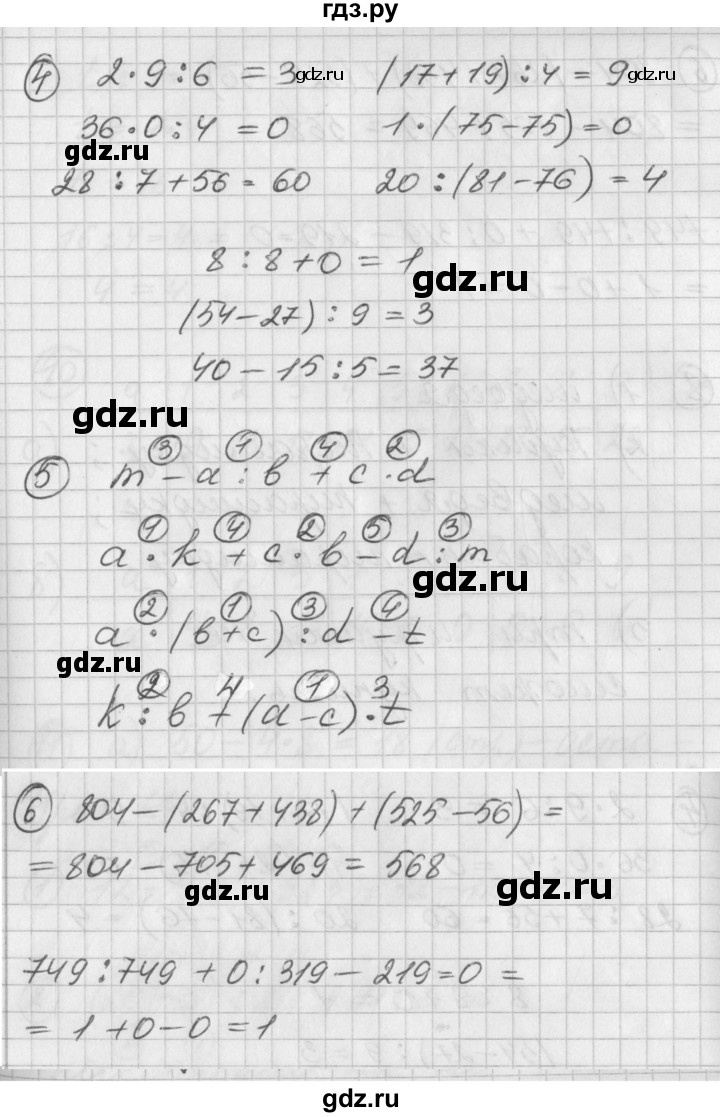 гдз.ру
④ 2·9:6 = 3 gdz.ru (17+19):4 = 9 gdz.ru
36·0:4 = 0 1·(75-75)=0
gdz.ru
28:7+56=60 20:(81-76)=4
8:8+0=1
gdz.ru
(54-27):9=3
40-15:5=37
gdz.ru
③ ① ④ ②
⑤ m-a:b+c·d
① ④ ② ⑤ ③
a·k+c·b-d:m
gdz.ru
② ① ③ ④
a·(b+c):d-t
gdz.ru
② 4 ① 3
k:b+(a-c)·t
⑥ 804-(267+438)+(525-56)=
=804-705+469=568
gdz.ru gdz.ru
749:749+0:319-219=0=
=1+0-0=1
gdz.ru
gdz.ru